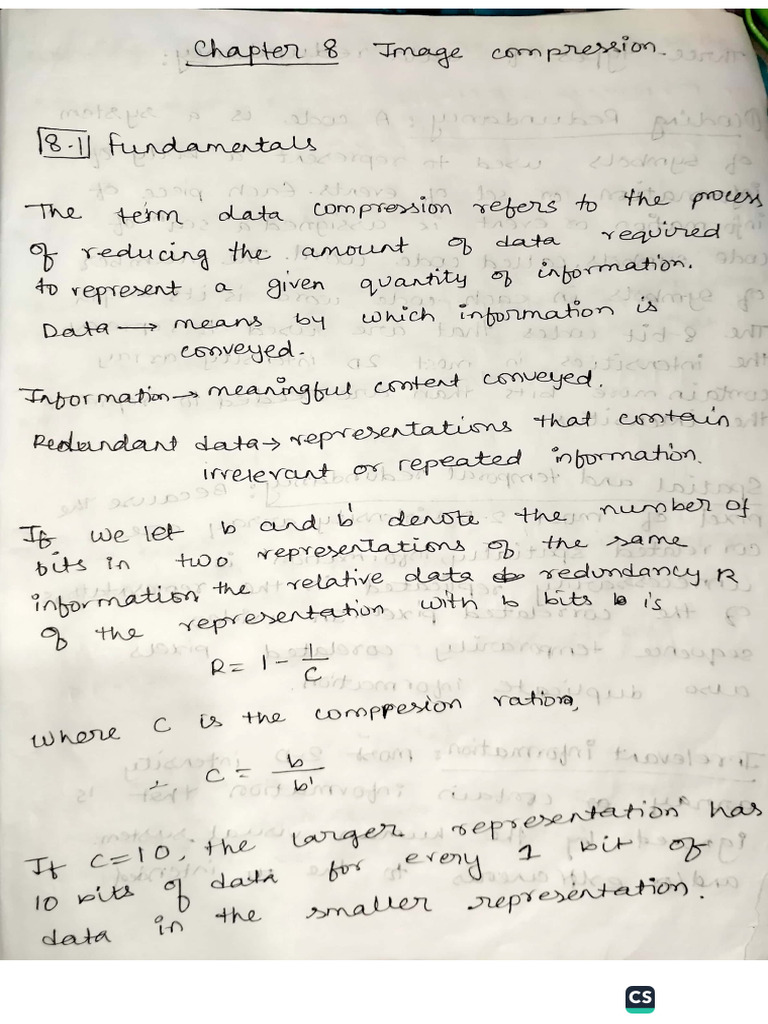 Chapter 8 Image compression.
8.1 Fundamentals
The term data compression refers to the process
of reducing the amount of data required
to represent a given quantity of information.
Data → means by which information is
conveyed.
Information → meaningful content conveyed.
Redundant data → representations that contain
irrelevant or repeated information.
If we let b and b' denote the number of
bits in two representations of the same
information the relative data redundancy R
of the representation with b bits is
R = 1 - 1/C
where C is the comppesion ration,
÷ C = b/b'
If C=10, the larger representation has
10 bits of data for every 1 bit of
data in the smaller representation.
CS